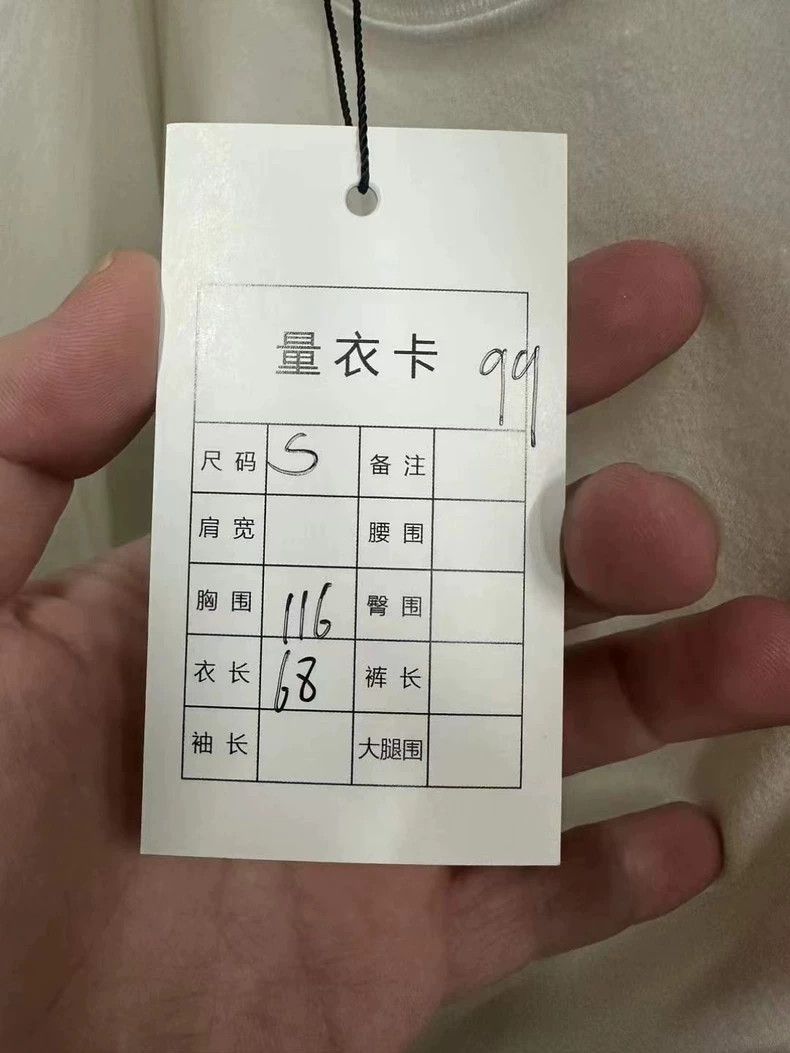 量衣卡 99
尺码 S 备注
肩宽 腰围
胸围 116 臀围
衣长 68 裤长
袖长 大腿围